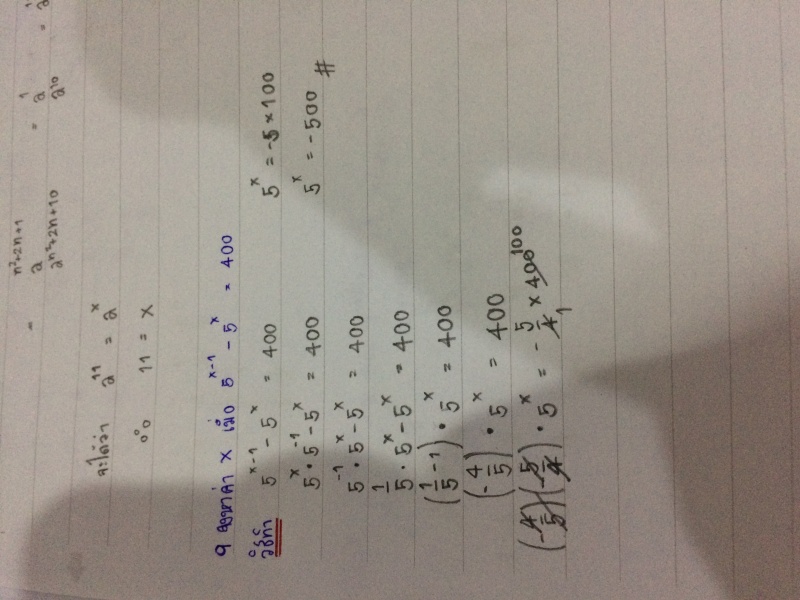 - n²+2n+1 = 1 =
2 2
2n²+2n+10 2¹⁰
จะได้ว่า 2¹¹ = 2ˣ
∴ 11 = x
9 จงหาค่า x เมื่อ 5ˣ⁻¹ - 5ˣ = 400
วิธีทำ 5ˣ⁻¹ - 5ˣ = 400
5ˣ · 5⁻¹ - 5ˣ = 400
5⁻¹ · 5ˣ - 5ˣ = 400
1/5 · 5ˣ - 5ˣ = 400
(1/5 - 1) · 5ˣ = 400
(-4/5) · 5ˣ = 400
(-4/5)(-5/4) · 5ˣ = -5/4 × 400 100
1
5ˣ = -5 × 100
5ˣ = -500 #